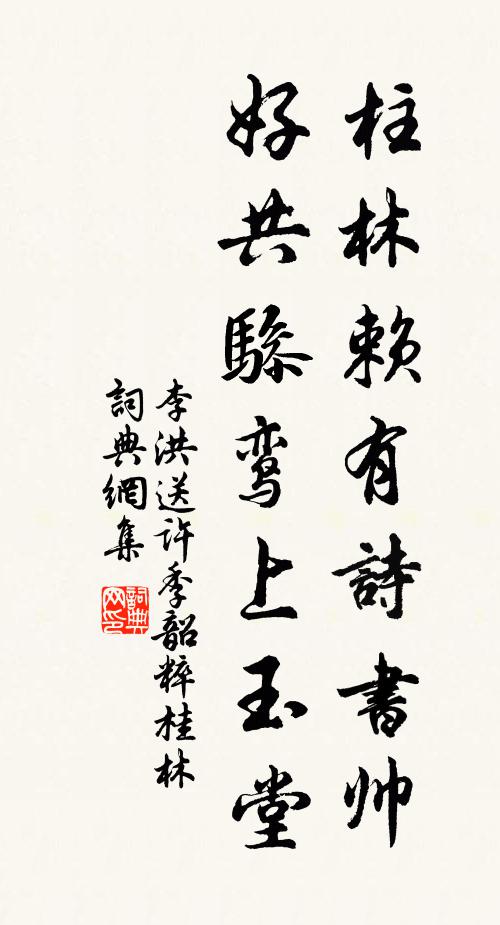 柱林赖有詩書帅
好共驂鸾上玉堂
李洪送許季韶粹桂林
詞典網集
詞典网印